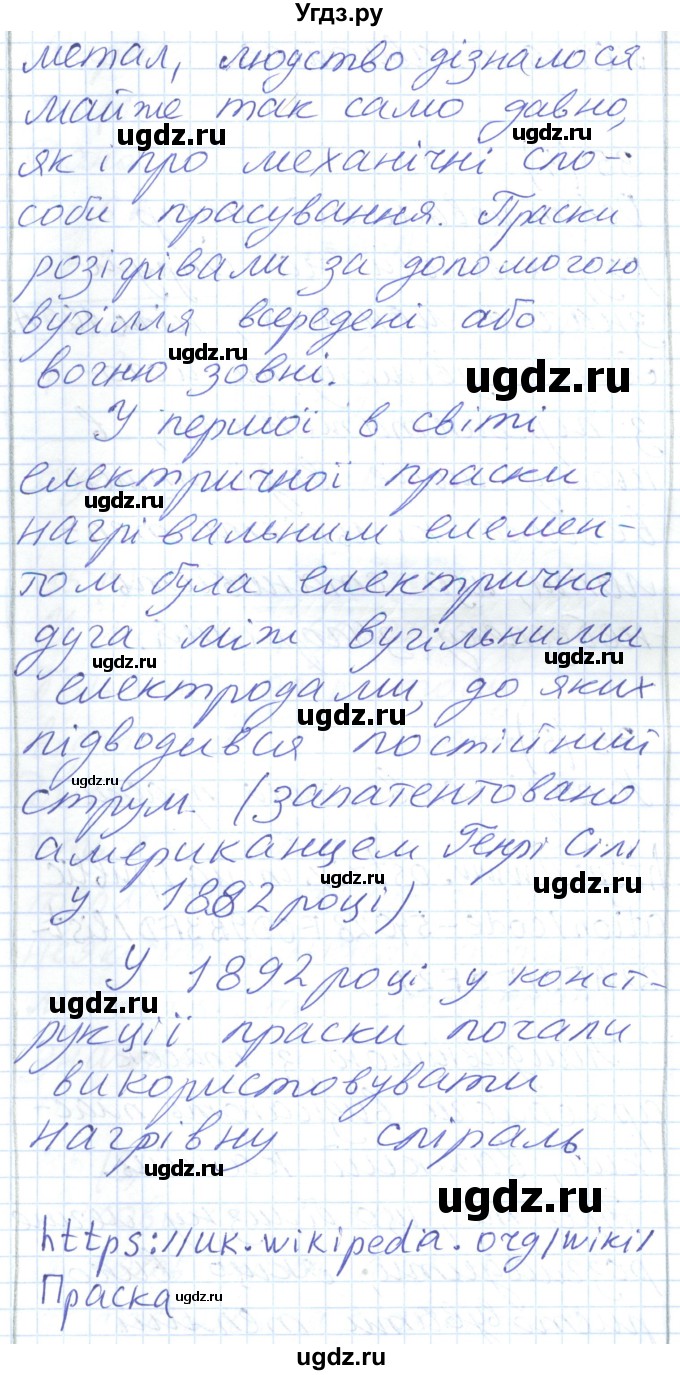 Угдз.ру
метал, людство дізналося
майже так само давно,
ugdz.ru ugdz.ru
як і про механічні спо-
соби прасування. Праски
розігрівали за допомогою
вугілля всередені або
ugdz.ru
вогню зовні.
ugdz.ru
У першої в світі
електричної праски
ugdz.ru
нагрівальним елемен-
том була електрична
дуга між вугільними
ugdz.ru ugdz.ru
електродами, до яких
ugdz.ru
підводився постійний
ugdz.ru
струм. (запатентовано
американцем Генрі Сілі
ugdz.ru ugdz.ru
у 1882 році).
У 1892 році у конст-
ugdz.ru
рукції праски почали
використовувати
нагрівну спіраль.
ugdz.ru
ugdz.ru
https://uk.wikipedia.org/wiki/
Праска
ugdz.ru
ugdz.ru